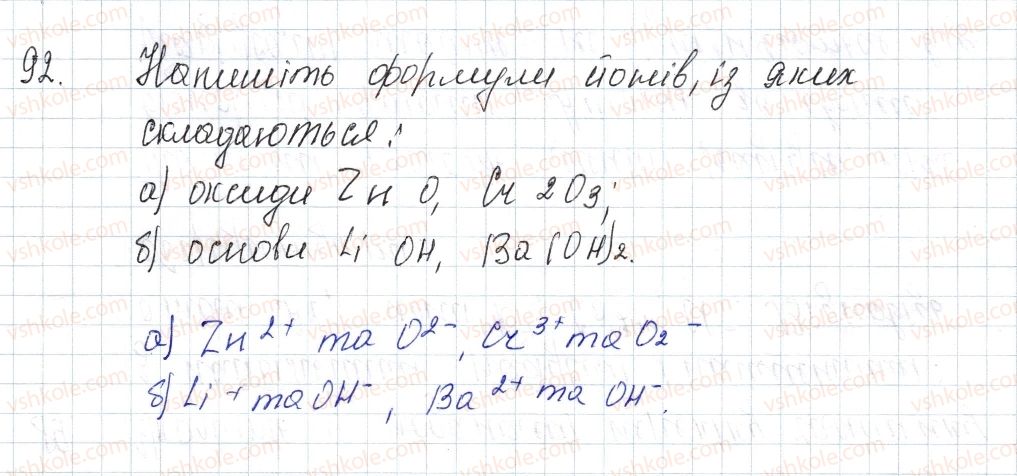 92. Напишіть формули йонів, із яких
складаються:
а) оксиди ZnO, Cr2O3;
б) основи LiOH, Ba(OH)2.
а) Zn²⁺ та O²⁻, Cr³⁺ та O₂⁻
б) Li⁺ та OH⁻, Ba²⁺ та OH⁻.